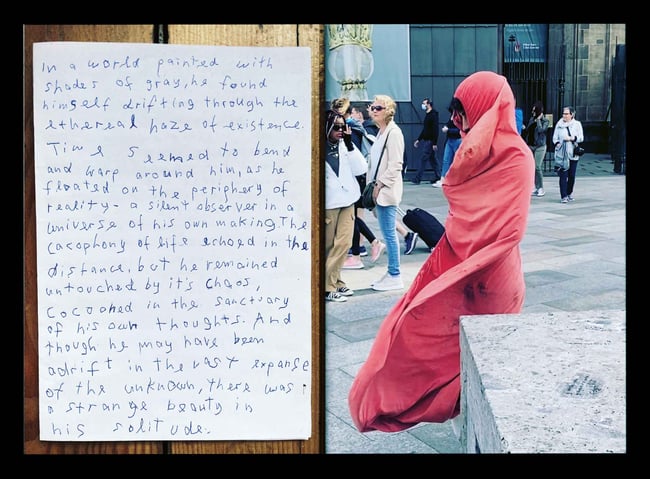 In a world painted with
shades of gray, he found
himself drifting through the
ethereal haze of existence.
Time seemed to bend
and warp around him, as he
floated on the periphery of
reality - a silent observer in a
universe of his own making. The
cacophony of life echoed in the
distance, but he remained
untouched by it's chaos,
cocooned in the sanctuary
of his own thoughts. And
though he may have been
adrift in the vast expanse
of the unknown, there was
a strange beauty in
his solitude.